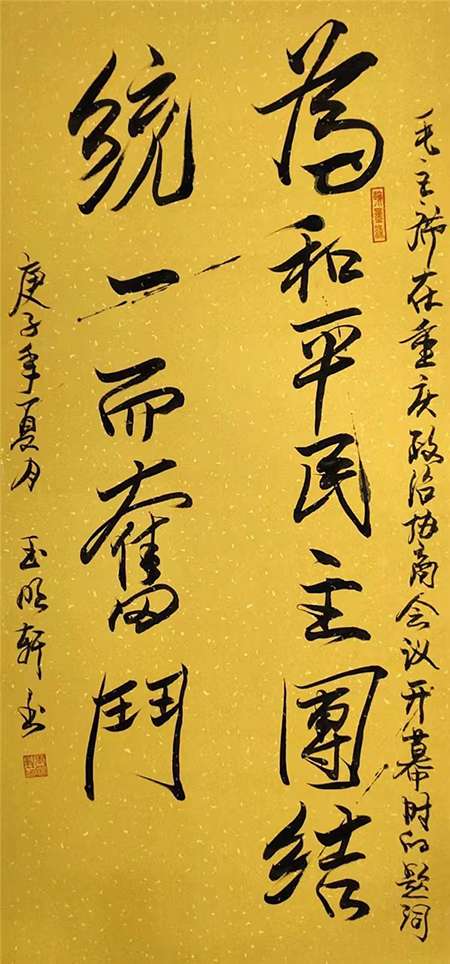 毛主席在重庆政治协商会议开幕时的题词
為和平民主團结
統一而奮鬥
庚子年夏月 玉明轩书